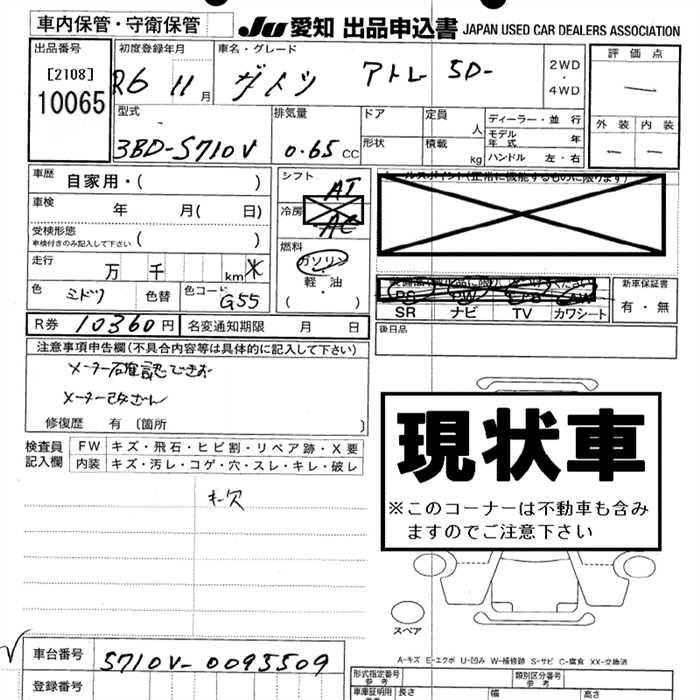 車内保管・守衛保管
JU 愛知 出品申込書 JAPAN USED CAR DEALERS ASSOCIATION
出品番号
[2108]
10065
初度登録年月
R6 11月
車名・グレード
ダイハツ アトレー 5D-
2WD
・
4WD
評価点
—
外装 内装
— —
型式
3BD-S710V
排気量
0.65 CC
ドア
形状
定員
人
積載
kg
ディーラー・並行
モデル年式 年
ハンドル 左・右
車歴
自家用・( )
車検
年 月( 日)
受検形態
車検付きのみ記入して下さい ( )
走行
万 千 km ※
色
ミドリ
色替
色コード
G55
シフト
AT
冷房
AC
燃料
ガソリン
・
軽油
( ・ )
セールスポイント(正常に機能するものに限ります)
PS PW エアB AW
SR ナビ TV カワシート
新車保証書
有・無
後日品
R券 10360円 名変通知期限 月 日
注意事項申告欄(不具合内容等は具体的に記入して下さい)
メーター確認できず
メーター改ざん
修復歴 有〔箇所
検査員記入欄
FW キズ・飛石・ヒビ割・リペア跡・X要
内装 キズ・汚レ・コゲ・穴・スレ・キレ・破レ
キ欠
現状車
※このコーナーは不動車も含みますのでご注意下さい
スペア
A-キズ E-エクボ U-凹み W-補修跡 S-サビ C-腐食 XX-交換済
車台番号 S710V-0095509
登録番号
形式指定番号
参考
類別区分番号
参考
車庫証明用
長さ 幅 高さ